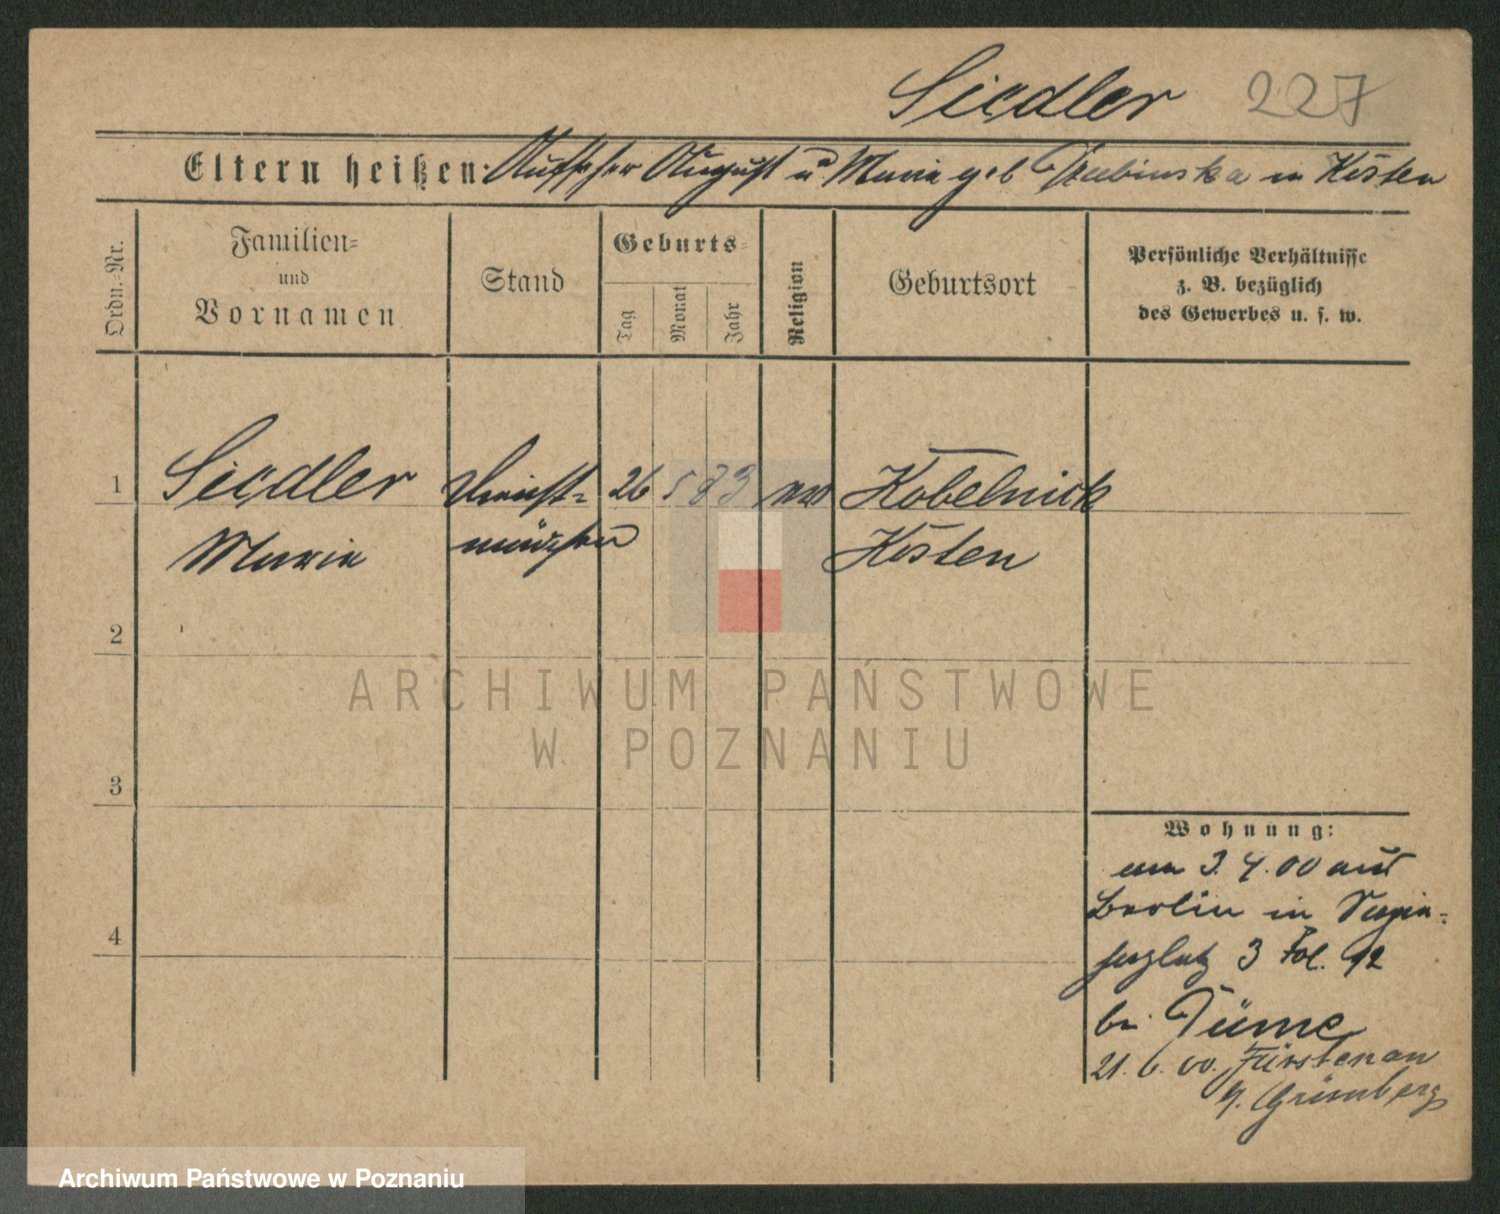 Siedler 227
Eltern heißen: August u Marie geb in Kosten
Ordn.-Nr.
Familien-
und
Vornamen
Stand
Geburts-
Tag
Monat
Jahr
Religion
Geburtsort
Persönliche Verhältnisse
z. B. bezüglich
des Gewerbes u. s. w.
1 Siedler Dienst- 26 5 83 Kobelnick
Marie mädchen Kosten
2
3
4
ARCHIWUM PAŃSTWOWE
W POZNANIU
Wohnung:
am 3.4.00 aus
Berlin in Sapie-
haplatz 3 Fol. 92
bei Tüme
21.6.00. Fürstenau
Grünberg
Archiwum Państwowe w Poznaniu